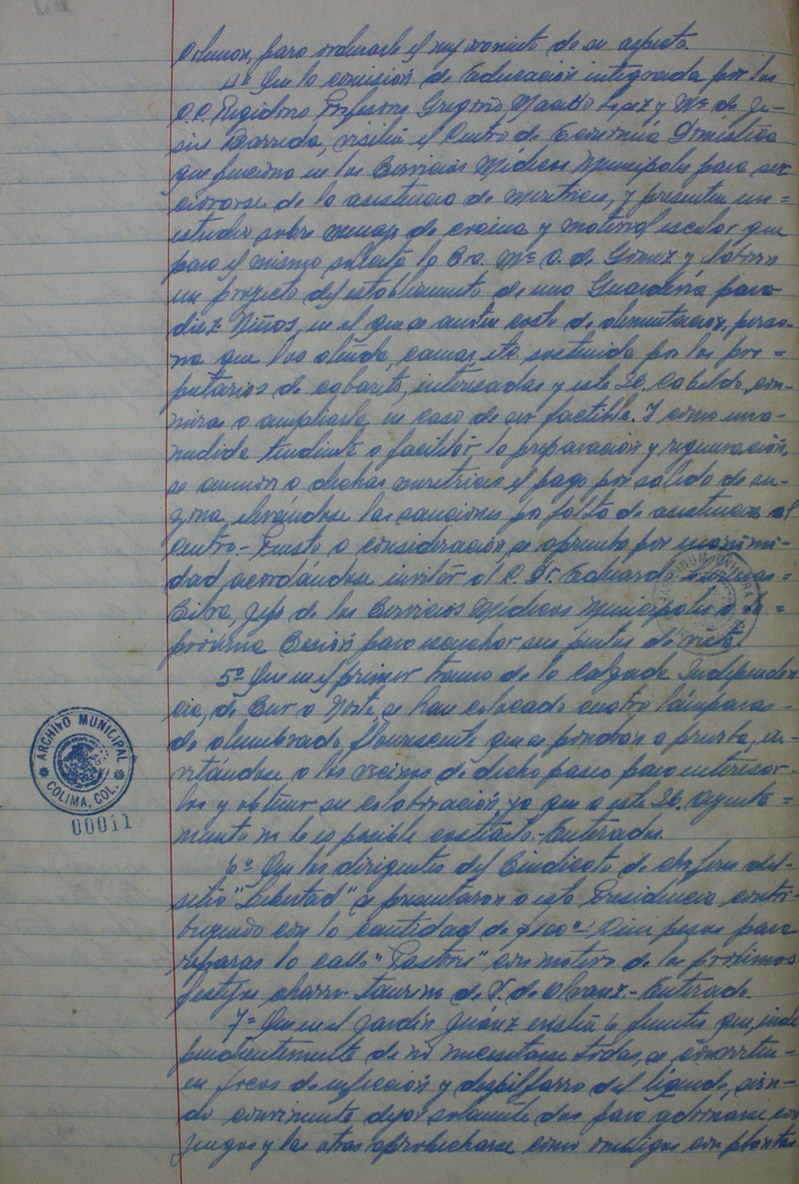 Colimón, para ordenarle el mejoramiento de su aspecto.
4º Que la comisión de Educación integrada por los
CC. Regidores Profesores Gregorio Macedo López y Mª de Je-
sús Barreda, visitó el Centro de Economía Doméstica
que funciona en los Servicios Médicos Municipales para cer
ciorarse de la asistencia de meretrices, y presenten un=
estudio sobre menaje de cocina y material escolar que
para el mismo solicitó la Sra. Mª O. de Gómez y elaboren
un proyecto del establecimiento de una Guardería para
diez Niños, en el que se anoten costo de alimentación, perso-
na que los atienda, camas, etc. sostenida por los pro=
pietarios de cabarets, interesadas y este H. Cabildo, con
miras a ampliarla, en caso de ser factible. Y como una-
medida tendiente a facilitar la preparación y regeneración,
se aumente a dichas meretrices el pago por salida de su-
zona, elevándose las sanciones por falta de asistencia al
centro.- Puesto a consideración se aprueba por unanimi-
dad acordándose invitar al C. Dr. Eduardo
Silva, Jefe de los Servicios Médicos Municipales a la=
próxima Sesión para escuchar sus puntos de vista.
5º Que en el primer tramo de la Calzada Independen
cia, de Sur a Norte, se han colocado cuatro lámparas-
de alumbrado fluorescente que se pondrán a prueba, in-
vitándose a los vecinos de dicho paseo para interesar-
los y obtener su colaboración ya que a este H. Ayunta=
miento no le es posible costearlo.- Enterados.
6º Que los dirigentes del Sindicato de choferes del-
sitio "Libertad" se presentaron a esta Presidencia contri-
buyendo con la cantidad de $100.- Cien pesos para
reparar la calle "Pastora" con motivo de los próximos
festejos charro-taurino de V. de Alvarez.- Enterado.
7º Que en el Jardín Juárez existía 6 fuentes que, inde
pendientemente de no necesitarse todas, se convierten-
en focos de infección y despilfarro del líquido, sien-
do conveniente dejar solamente dos para adornarse con
juegos y las otras aprovecharse como arriates con plantas
ARCHIVO MUNICIPAL
COLIMA, COL.
00011